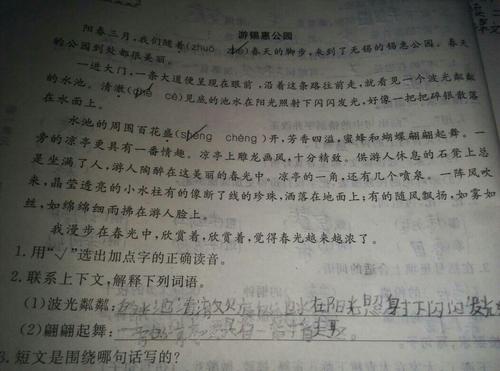 游锡惠公园
阳春三月,我们随着(zhuó zhe)春天的脚步,来到了无锡的锡惠公园。春天
的公园到处都很美丽。
一进大门,一条大道便呈现在眼前,沿着这条路往前走,就看见一个波光粼粼
的水池。清澈(chè cè)见底的池水在阳光照射下闪闪发光,好像一把把碎银散落
在水面上。
水池的周围百花盛(shèng chèng)开,芳香四溢,蜜蜂和蝴蝶翩翩起舞。一
旁的凉亭更具有一番情趣。凉亭上雕龙画凤,十分精致。供游人休息的石凳上总
是坐满了人,游人陶醉在这美丽的春光中。凉亭的一角,还有几个喷泉。一阵风吹
来,晶莹透亮的小水柱有的像断了线的珍珠,洒落在地面上;有的随风飘扬,如雾如
丝,如绵绵细雨拂在游人脸上。
我漫步在春光中,欣赏着,欣赏着,觉得春光越来越浓了。
1.用“√”选出加点字的正确读音。
2.联系上下文,解释下列词语。
(1)波光粼粼: 水在阳光照射下闪闪发光
(2)翩翩起舞:
3.短文是围绕哪句话写的?